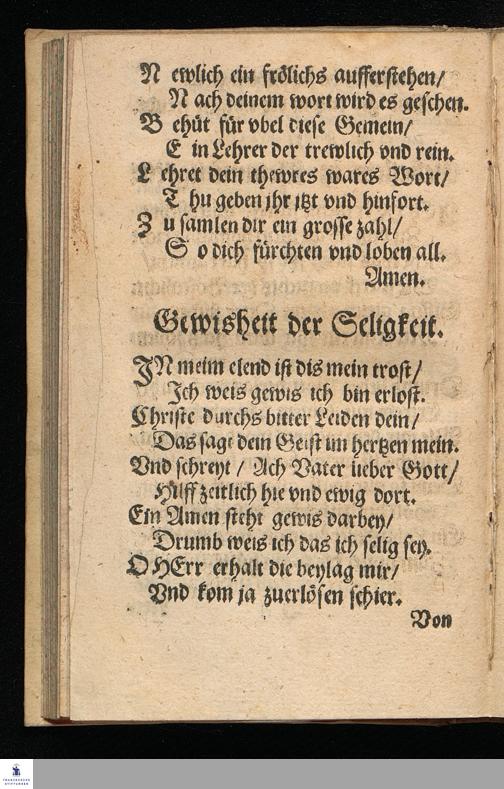 N ewlich ein frölichs aufferstehen/
N ach deinem wort wird es geschen.
B ehüt für vbel diese Gemein/
E in Lehrer der trewlich vnd rein.
L ehret dein thewres wares Wort/
T hu geben jhr jtzt vnd hinfort.
Z u samlen dir ein grosse zahl/
S o dich fürchten vnd loben all.
Amen.
Gewisheit der Seligkeit.
JN meim elend ist dis mein trost/
Jch weis gewis ich bin erlost.
Christe durchs bitter Leiden dein/
Das sagt dein Geist im hertzen mein.
Vnd schreyt / Ach Vater lieber Gott/
Hilff zeitlich hie vnd ewig dort.
Ein Amen steht gewis darbey/
Drumb weis ich das ich selig sey.
O HErr erhalt die beylag mir/
Vnd kom ja zuerlösen schier.
Von
FRANCKESCHE
STIFTUNGEN